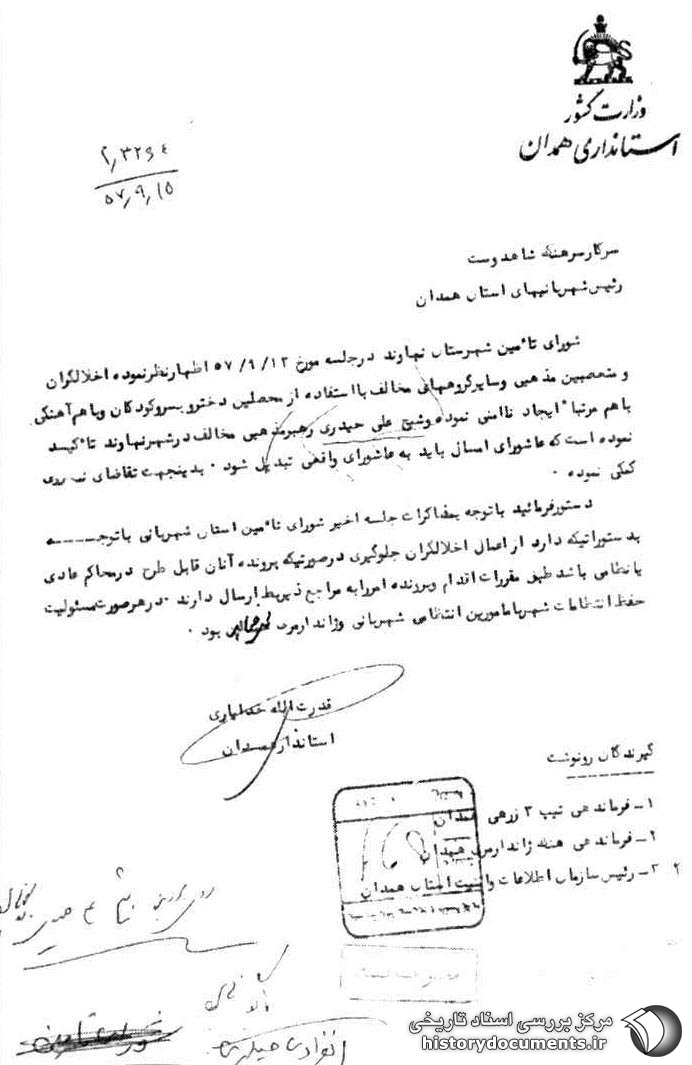 وزارت کشور
استانداری همدان
۵۷٫۹٫۱۵
سرکار سرهنگ شاهدوست
رئیس شهربانیهای استان همدان
شورای تأمین شهرستان نهاوند در جلسه مورخ ۵۷/۹/۱۲ اظهارنظر نموده اخلالگران
و متعصبین مذهبی و سایر گروههای مخالف با استفاده از محصلین دختر و پسر و کودکان و با هم‌آهنگی
با هم مرتباً ایجاد ناامنی نموده و شیخ علی حیدری رهبر مذهبی مخالف در شهر نهاوند تأکید
نموده است که عاشورای امسال باید به عاشورای واقعی تبدیل شود . بدینجهت تقاضای نیروی
کمکی نموده .
دستور فرمائید با توجه بمذاکرات جلسه اخیر شورای تأمین استان شهربانی با توجه
بدستوراتیکه دارد از اعمال اخلالگران جلوگیری در صورتیکه پرونده آنان قابل طرح در محاکم عادی
یا نظامی باشد طبق مقررات اقدام و پرونده امر را به مراجع ذیربط ارسال دارند . در هر صورت مسئولیت
حفظ انتظامات شهر با مامورین انتظامی شهربانی و ژاندارمری خواهد بود .
قدرت‌الله خدایاری
استاندار همدان
گیرندگان رونوشت
۱ـ فرماندهی تیپ ۳ زرهی همدان
۲ـ فرماندهی هنگ ژاندارمری همدان
۳ـ رئیس سازمان اطلاعات و امنیت استان همدان
مرکز بررسی اسناد تاریخی
historydocuments.ir